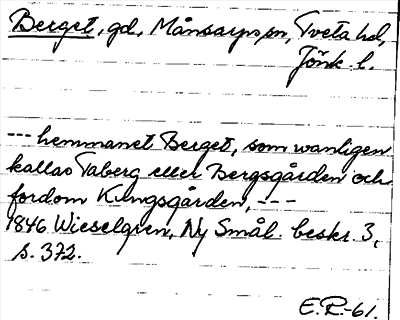 Berget, gd, Månsarps sn, Tveta hd,
Jönk. l.
--- hemmanet Berget, som wanligen
kallas Taberg eller Bergsgården och
fordom Kungsgården, ---
1846 Wieselgren, Ny Smål. beskr. 3,
s. 372.
E.R.-61.